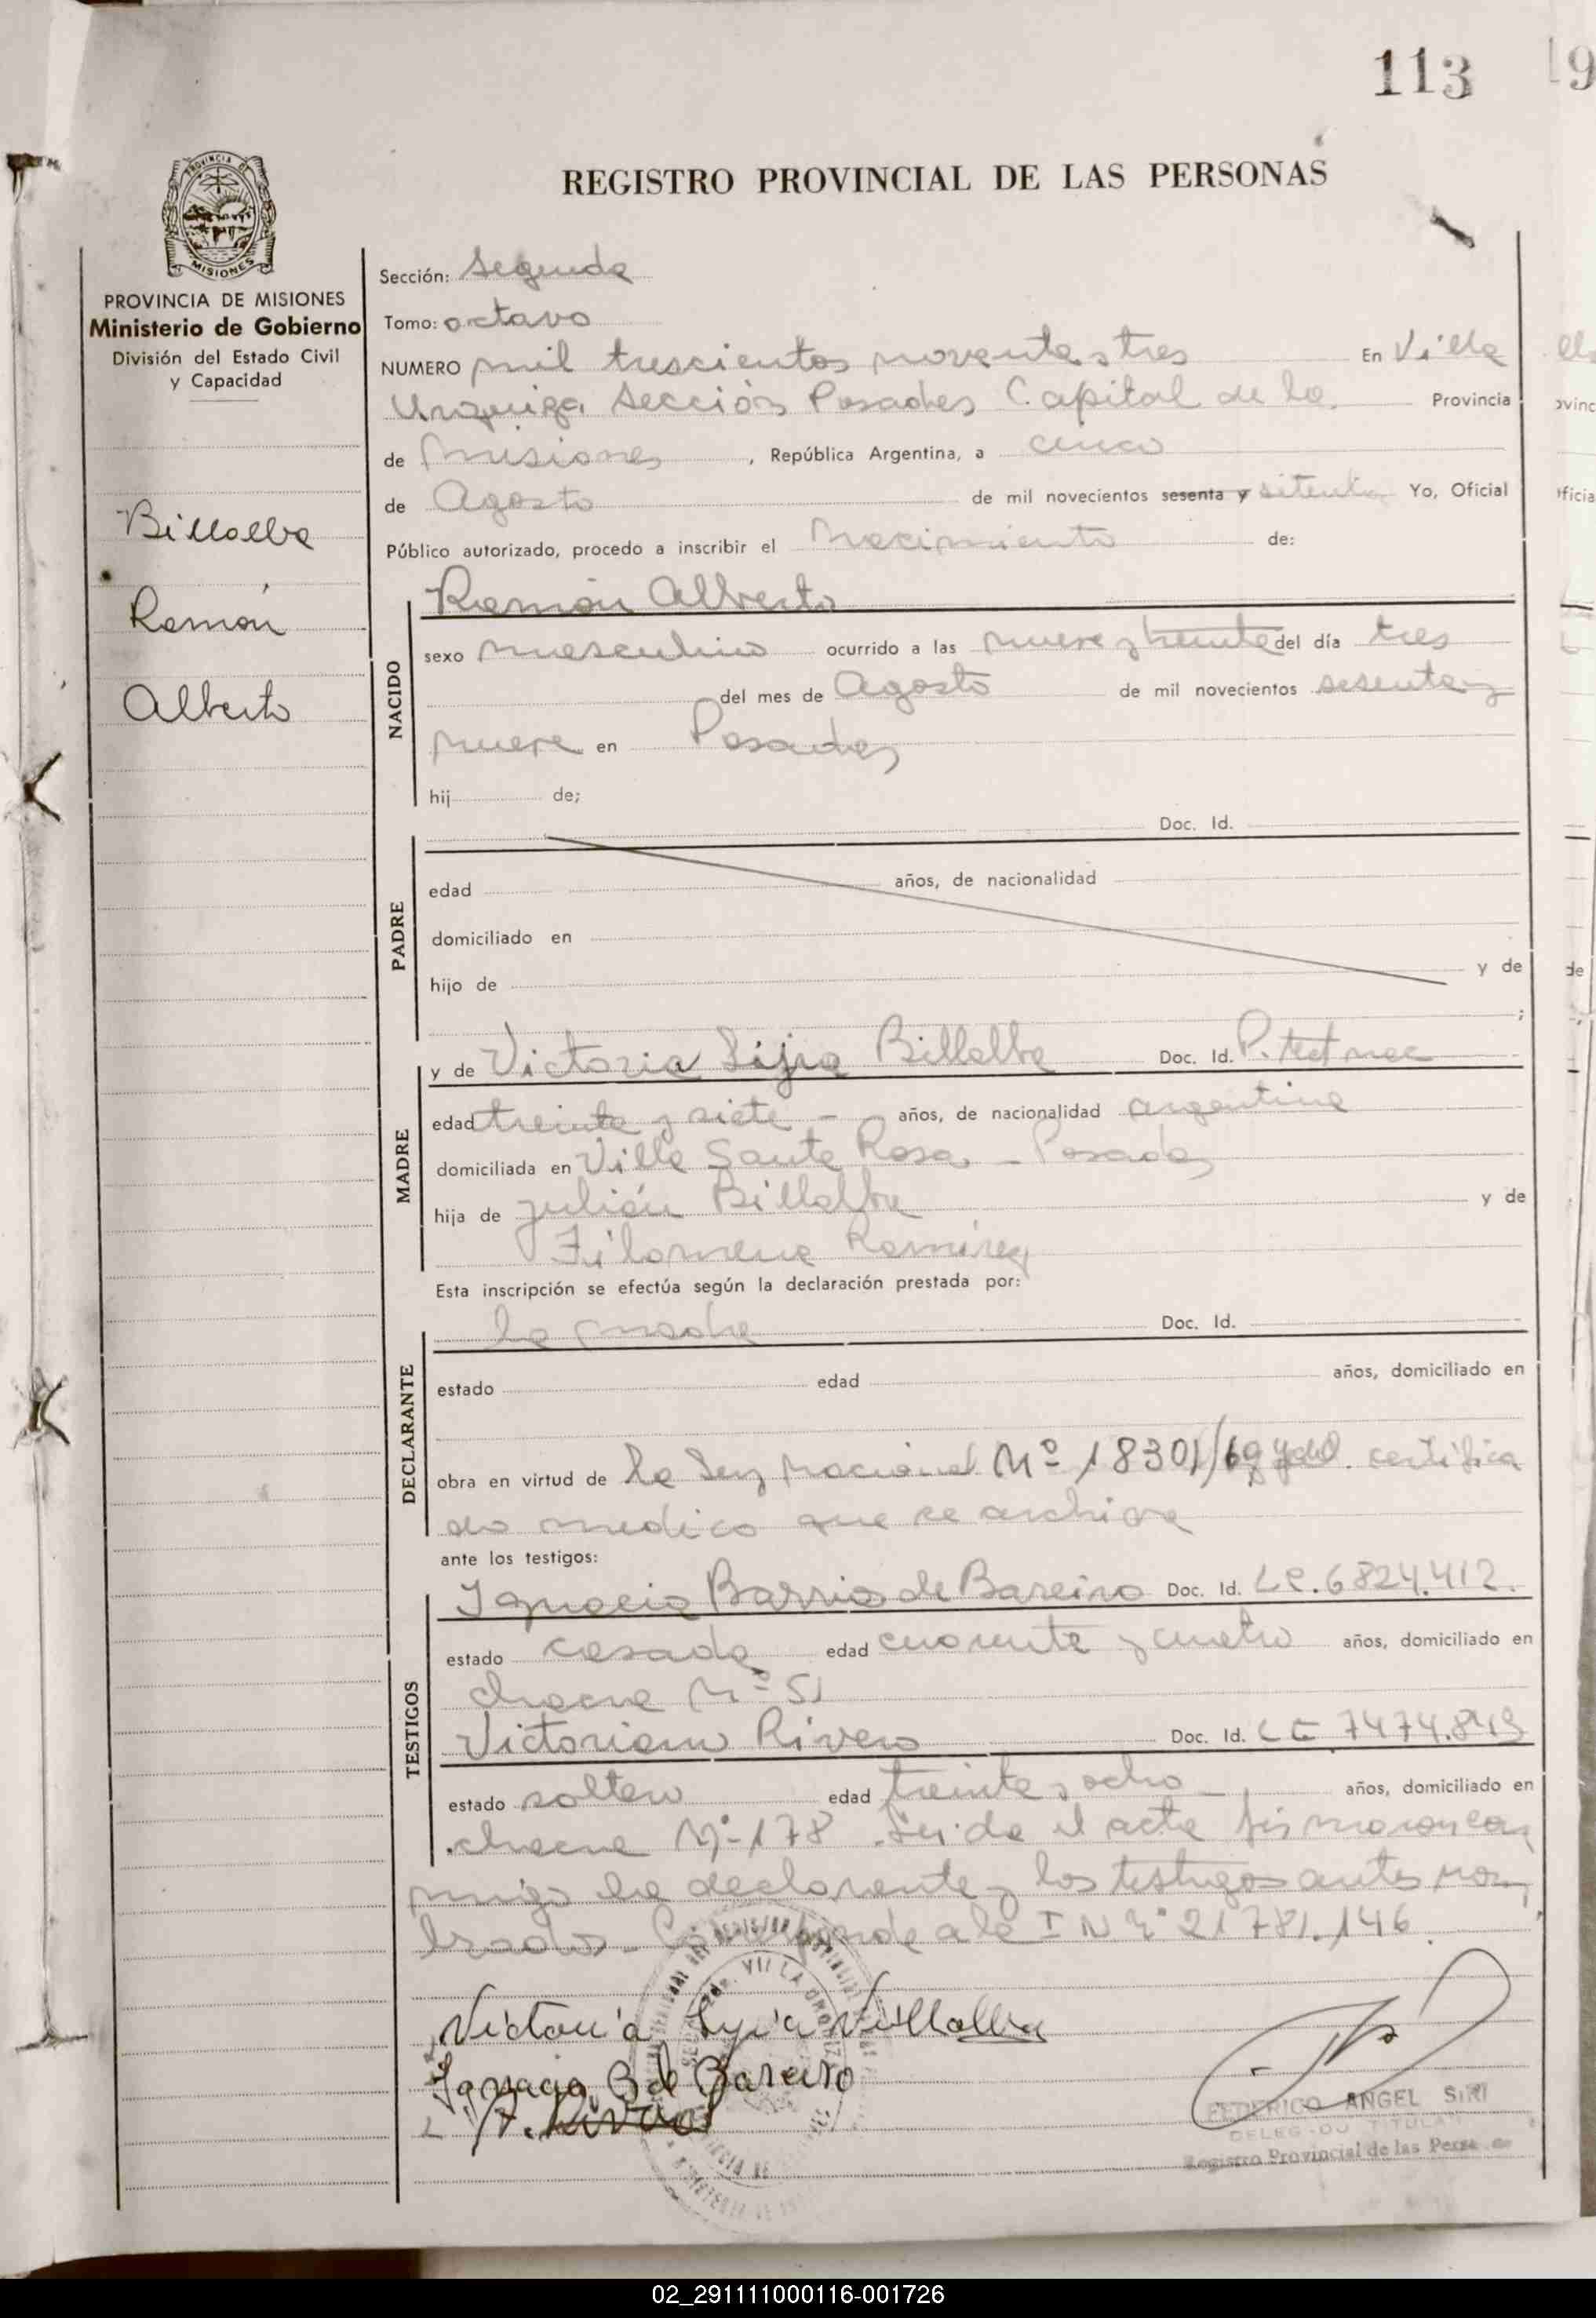 113
19
REGISTRO PROVINCIAL DE LAS PERSONAS
PROVINCIA DE
MISIONES
PROVINCIA DE MISIONES
Ministerio de Gobierno
División del Estado Civil
y Capacidad
Billalba
Ramón
Alberto
Sección: Segunda
Tomo: octavo
NUMERO mil trescientos noventa y tres En Villa
Urquiza Sección Posadas Capital de la Provincia
de Misiones, República Argentina, a cinco
de Agosto de mil novecientos sesenta y setenta Yo, Oficial
Público autorizado, procedo a inscribir el Nacimiento de:
NACIDO
Ramón Alberto
sexo masculino ocurrido a las nueve y treinta del día tres
del mes de Agosto de mil novecientos sesenta y
nueve en Posadas
hij de;
PADRE
Doc. Id.
edad años, de nacionalidad
domiciliado en
hijo de y de
;
MADRE
y de Victoria Lijia Billalba Doc. Id. P.
edad treinta y siete - años, de nacionalidad argentina
domiciliada en Villa Santa Rosa - Posadas
hija de Julián Billalba y de
Filomena Ramírez
Esta inscripción se efectúa según la declaración prestada por:
DECLARANTE
la madre Doc. Id.
estado edad años, domiciliado en
obra en virtud de la Ley Nacional Nº 18301/69 y del certifica
do medico que se archiva
ante los testigos:
TESTIGOS
Ignacia Barrios de Bareiro Doc. Id. LC. 6824.412.
estado casada edad cuarenta y cuatro años, domiciliado en
chacra Nº 51
Victoriano Rivero Doc. Id. LE 7474.849
estado soltero edad treinta y ocho - años, domiciliado en
chacra Nº 178. Leida el acta firmaron con
migo la declarante y los testigos antes nom
brados - Corresponde a la I N Nº 21781.146.
Victoria Lijia Villalba
Ignacia B de Bareiro
V. Rivero
FEDERICO ANGEL SIRI
DELEGADO TITULAR
Registro Provincial de las Personas
02_291111000116-001726